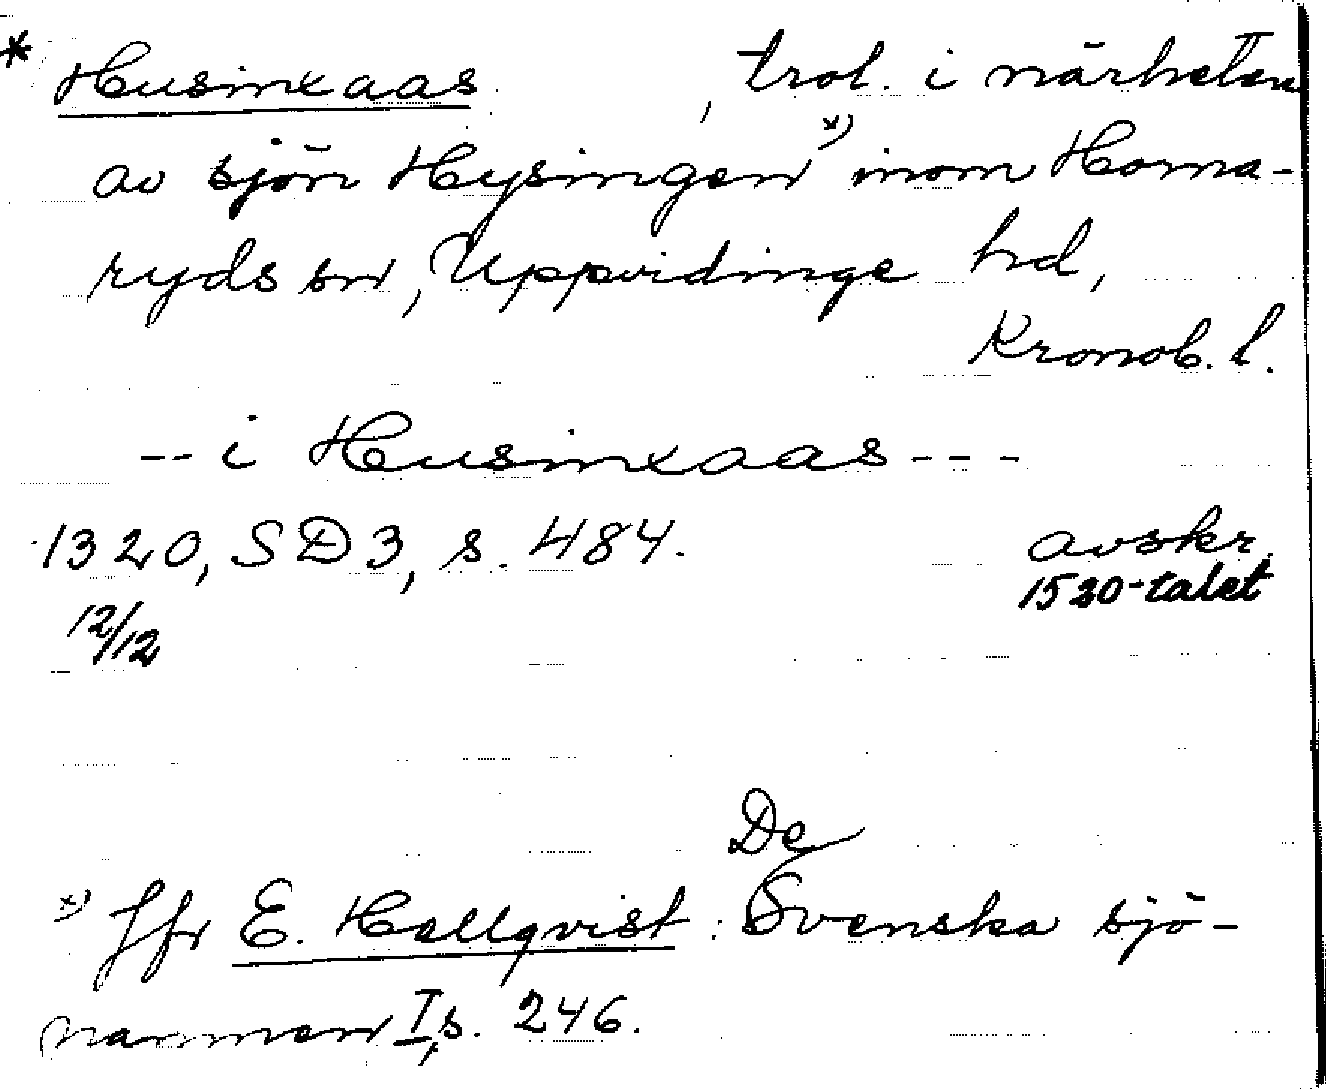 * Husinxaas , trol. i närheten
av sjön Hysingen x) inom Horna-
ryds sn, Uppvidinge hd,
Kronob. l.
-- i Husinxaas ---
1320, SD3, s. 484. avskr.
12/12 1520-talet
De
x) Jfr E. Hellqvist: Svenska sjö-
namnen I, s. 246.